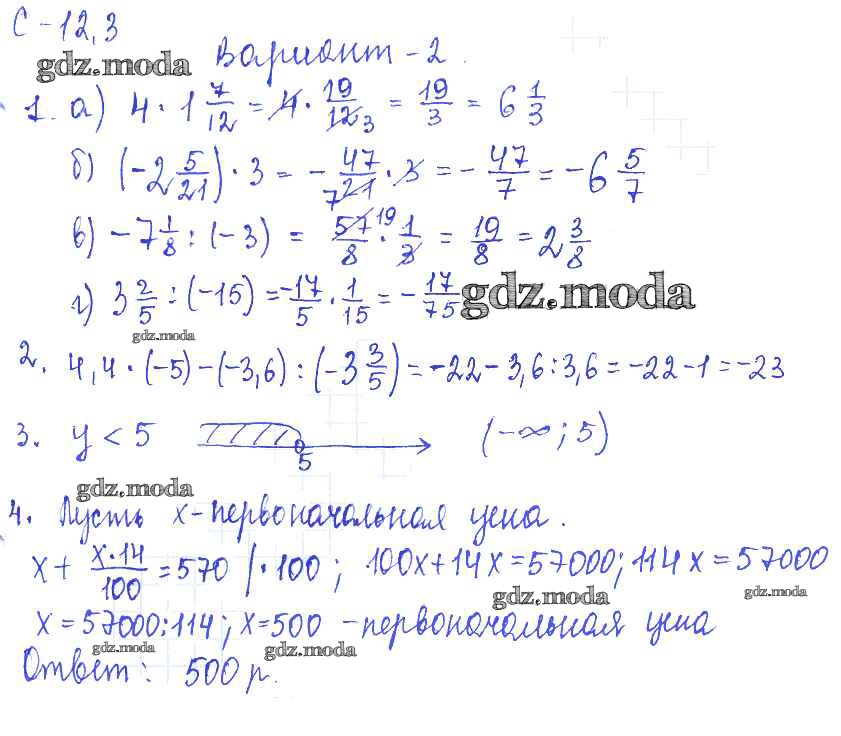 С-12,3
gdz.moda Вариант-2.
1. а) 4 · 1 7/12 = 4 · 19/12 3 = 19/3 = 6 1/3
б) (-2 5/21) · 3 = - 47/21 7 · 3 = - 47/7 = -6 5/7
в) -7 1/8 : (-3) = 57 19/8 · 1/3 = 19/8 = 2 3/8
г) 3 2/5 : (-15) = -17/5 · 1/15 = - 17/75 gdz.moda
gdz.moda
2. 4,4 · (-5) - (-3,6) : (-3 3/5) = -22 - 3,6 : 3,6 = -22 - 1 = -23
3. y < 5 5 (-∞; 5)
gdz.moda
4. Пусть x - первоначальная цена.
x + x·14/100 = 570 | · 100; 100x + 14x = 57000; 114x = 57000
gdz.moda gdz.moda
x = 57000:114; x = 500 - первоначальная цена
gdz.moda gdz.moda
Ответ: 500 р.